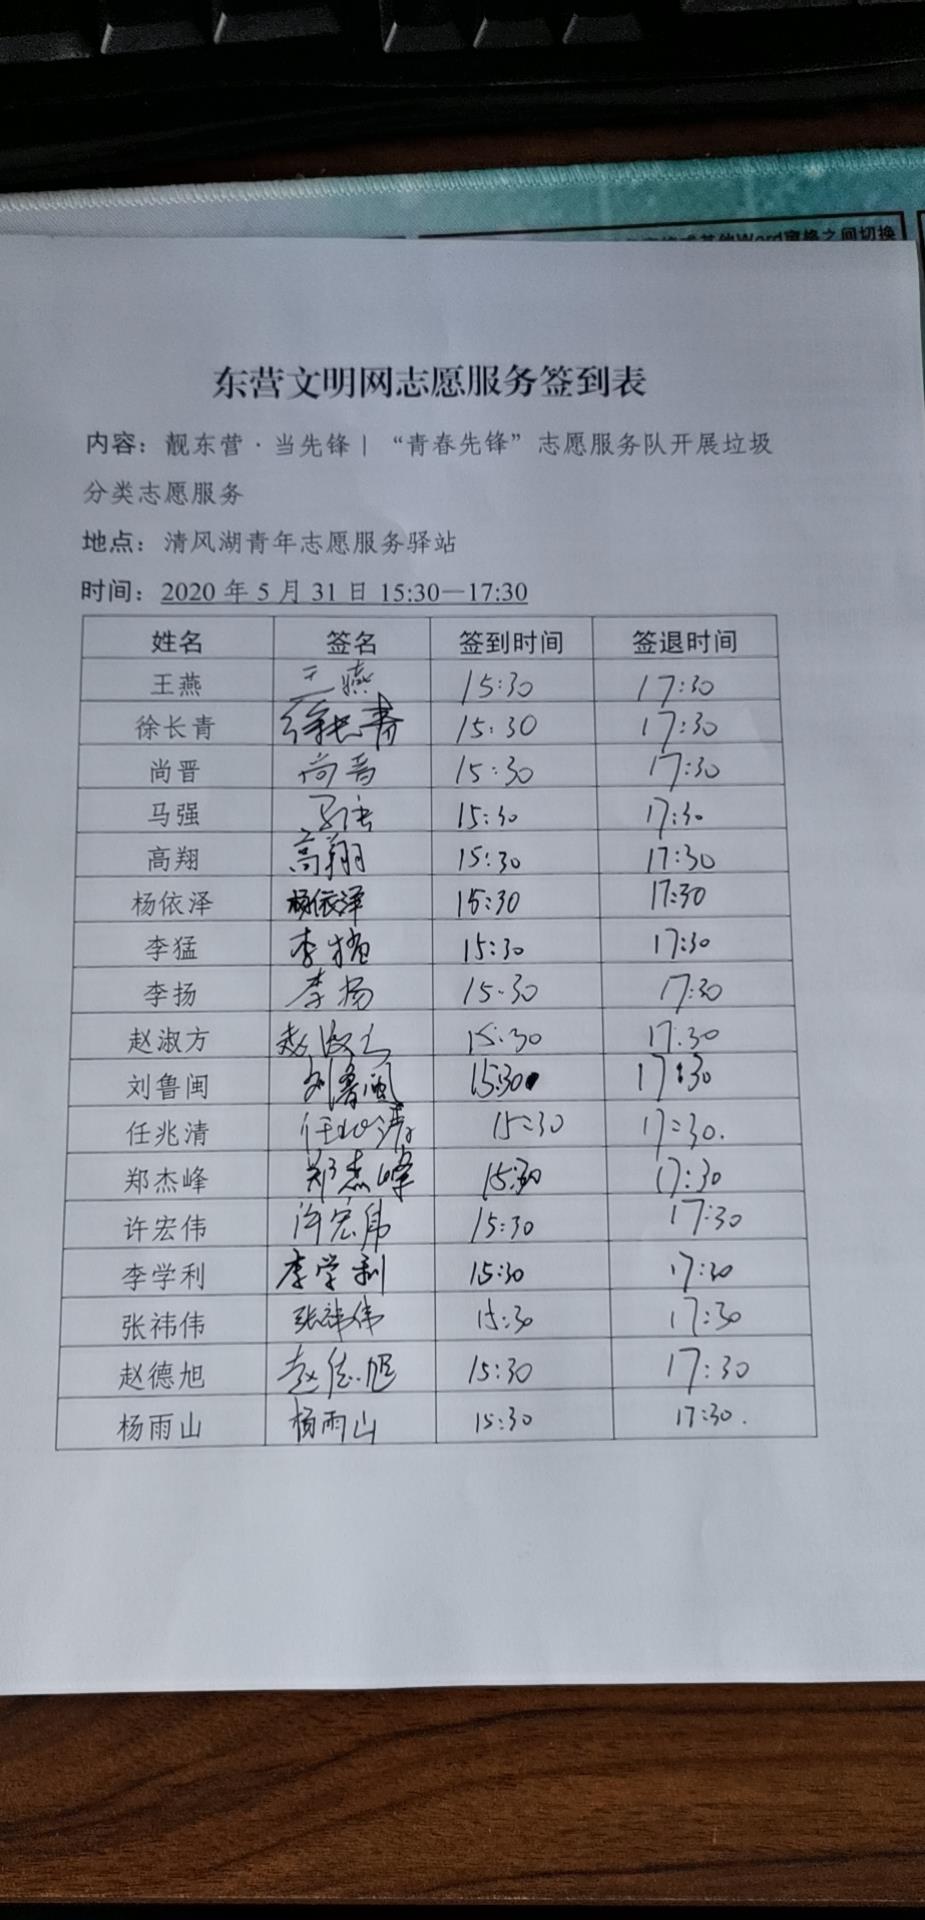 其他Word窗格之间切换
东营文明网志愿服务签到表
内容：靓东营·当先锋| “青春先锋”志愿服务队开展垃圾
分类志愿服务
地点：清风湖青年志愿服务驿站
时间：2020 年 5 月 31 日 15:30—17:30
姓名 签名 签到时间 签退时间
王燕 王燕 15:30 17:30
徐长青 徐长青 15:30 17:30
尚晋 尚晋 15:30 17:30
马强 马强 15:30 17:30
高翔 高翔 15:30 17:30
杨依泽 杨依泽 15:30 17:30
李猛 李猛 15:30 17:30
李扬 李扬 15:30 17:30
赵淑方 赵淑方 15:30 17:30
刘鲁闽 刘鲁闽 15:30 17:30
任兆清 任兆清 15:30 17:30.
郑杰峰 郑杰峰 15:30 17:30
许宏伟 许宏伟 15:30 17:30
李学利 李学利 15:30 17:30
张祎伟 张祎伟 15:30 17:30
赵德旭 赵德旭 15:30 17:30
杨雨山 杨雨山 15:30 17:30.